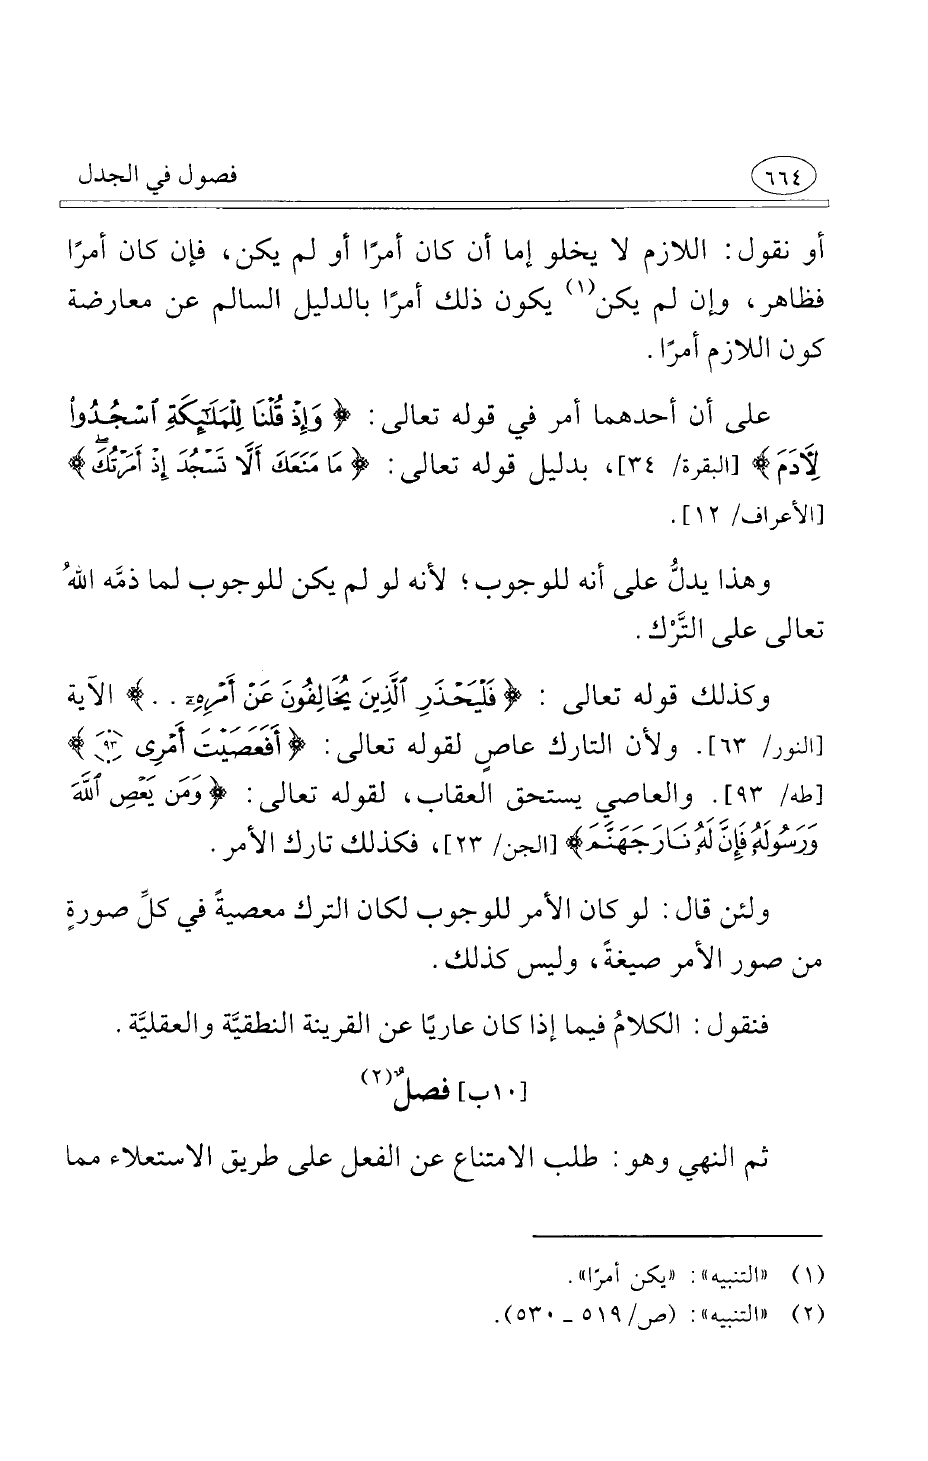 ٦٦٤ فصول في الجدل
أو نقول: اللازم لا يخلو إما أن كان أمرًا أو لم يكن، فإن كان أمرًا
فظاهر، وإن لم يكن(١) يكون ذلك أمرًا بالدليل السالم عن معارضة
كون اللازم أمرًا.
على أن أحدهما أمر في قوله تعالى: ﴿وَإِذْ قُلْنَا لِلْمَلَٰٓئِكَةِ ٱسْجُدُوا۟
لِءَادَمَ﴾ [البقرة/ ٣٤]، بدليل قوله تعالى: ﴿مَا مَنَعَكَ أَلَّا تَسْجُدَ إِذْ أَمَرْتُكَ ۖ﴾
[الأعراف/ ١٢].
وهذا يدلُّ على أنه للوجوب؛ لأنه لو لم يكن للوجوب لما ذمَّه اللهُ
تعالى على التَّرْك.
وكذلك قوله تعالى: ﴿فَلْيَحْذَرِ ٱلَّذِينَ يُخَالِفُونَ عَنْ أَمْرِهِۦٓ . .﴾ الآية
[النور/ ٦٣]. ولأن التارك عاصٍ لقوله تعالى: ﴿أَفَعَصَيْتَ أَمْرِى ۝٩٣﴾
[طه/ ٩٣]. والعاصي يستحق العقاب، لقوله تعالى: ﴿وَمَن يَعْصِ ٱللَّهَ
وَرَسُولَهُۥ فَإِنَّ لَهُۥ نَارَ جَهَنَّمَ﴾ [الجن/ ٢٣]، فكذلك تارك الأمر.
ولئن قال: لو كان الأمر للوجوب لكان الترك معصيةً في كلِّ صورةٍ
من صور الأمر صيغةً، وليس كذلك.
فنقول: الكلامُ فيما إذا كان عاريًا عن القرينة النطقيَّة والعقليَّة.
[١٠ب] فصلٌ(٢)
ثم النهي وهو: طلب الامتناع عن الفعل على طريق الاستعلاء مما
(١) «التنبيه»: «يكن أمرًا».
(٢) «التنبيه»: (ص/ ٥١٩ - ٥٣٠).